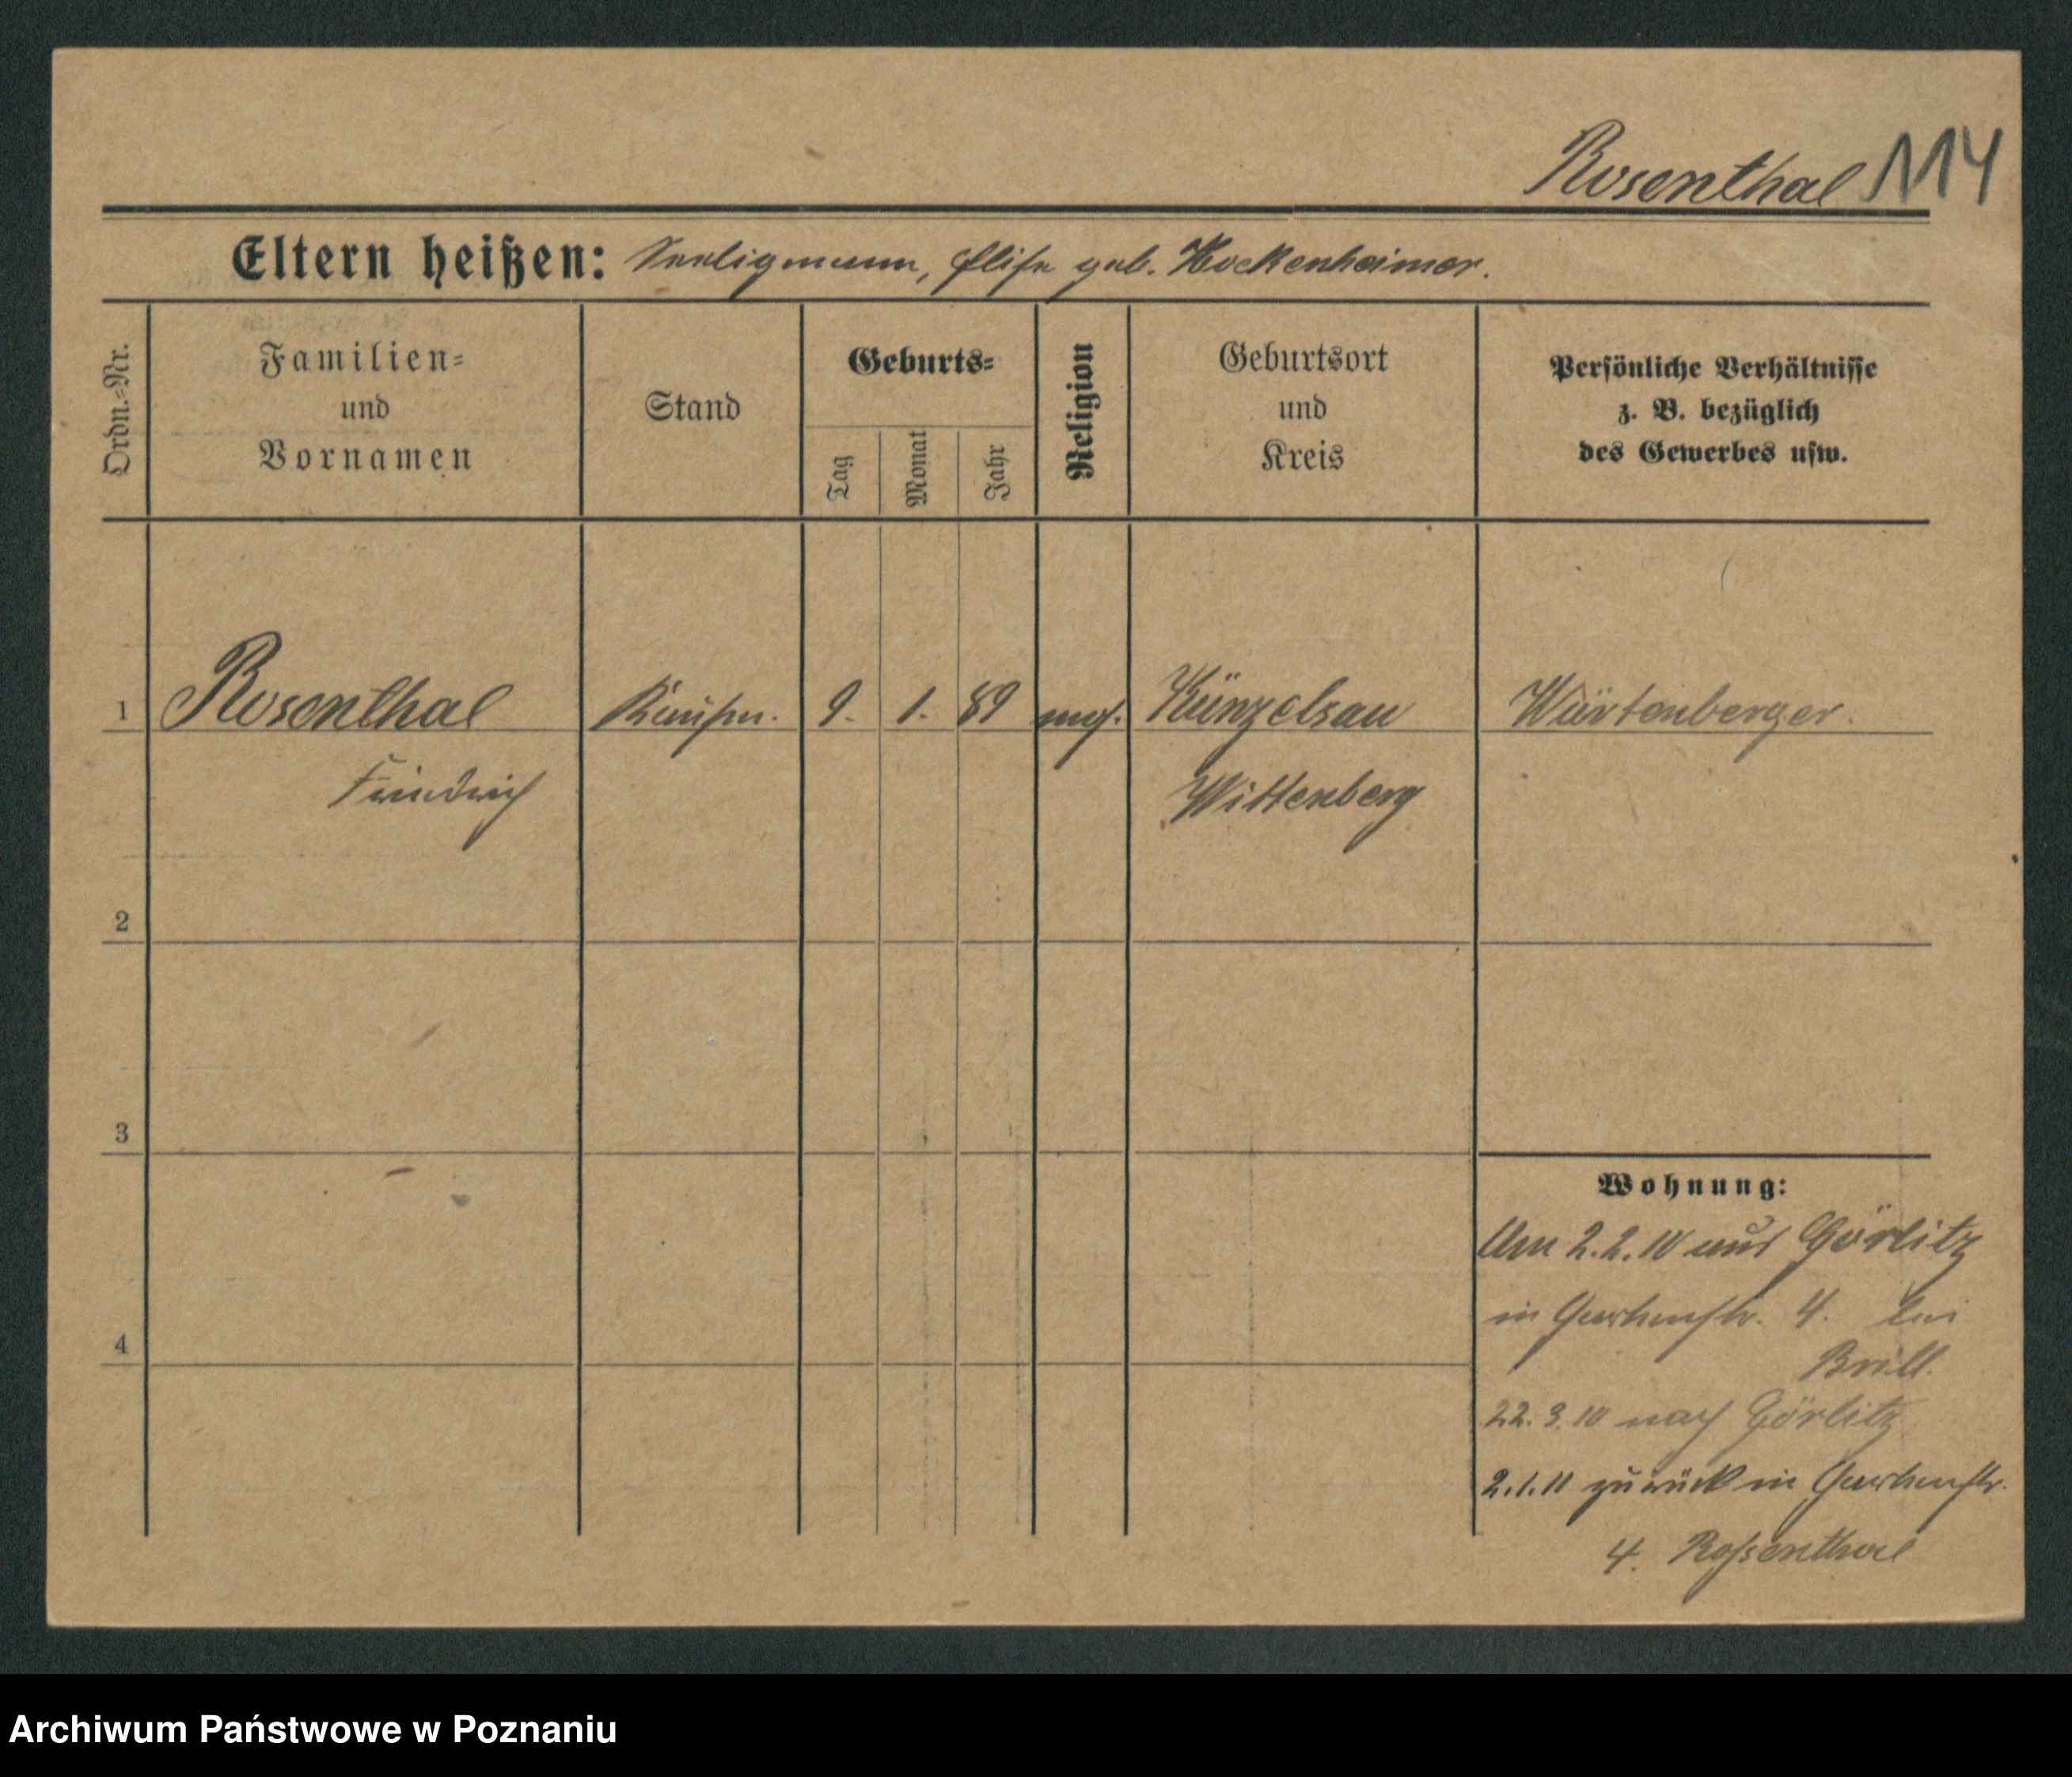 Rosenthal 114
Eltern heißen: Seeligmann, Elise geb. Hockenheimer.
Ordn.-Nr.
Familien- und Vornamen
Stand
Geburts-
Tag
Monat
Jahr
Religion
Geburtsort und Kreis
Persönliche Verhältnisse z. B. bezüglich des Gewerbes usw.
1 Rosenthal Kaufm. 9. 1. 89 mos. Künzelsau Würtenberger.
Friedrich Wittenberg
2
3
4
Wohnung:
Am 2.2.10 aus Görlitz
in 4. bei
Brill.
22.3.10 nach Görlitz
2.1.11 zurück in
4. Rosenthal
Archiwum Państwowe w Poznaniu